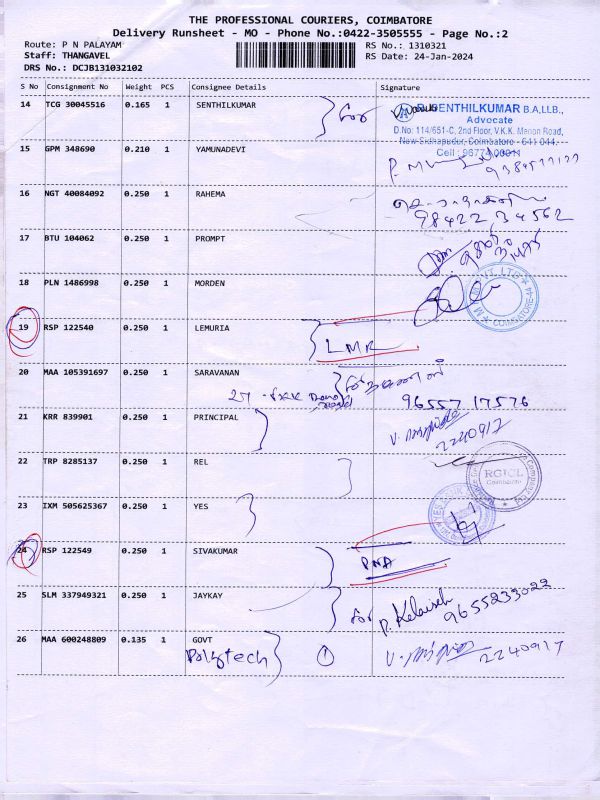 THE PROFESSIONAL COURIERS, COIMBATORE
Delivery Runsheet - MO - Phone No.:0422-3505555 - Page No.:2
Route: P N PALAYAM
RS No.: 1310321
Staff: THANGAVEL
RS Date: 24-Jan-2024
DRS No.: DCJB131032102
S No Consignment No Weight PCS Consignee Details Signature
14 TCG 30045516 0.165 1 SENTHILKUMAR
SENTHILKUMAR B.A,LLB.,
Advocate
D.No: 114/651-C, 2nd Floor, V.K.K. Menon Road,
New Sidhapudur, Coimbatore - 641 044.
Cell : 96774
15 GPM 348690 0.210 1 YAMUNADEVI
16 NGT 40084092 0.250 1 RAHEMA
98422 34562
17 BTU 104062 0.250 1 PROMPT
18 PLN 1486998 0.250 1 MORDEN
COIMBATORE-44
19 RSP 122540 0.250 1 LEMURIA
LMR
20 MAA 105391697 0.250 1 SARAVANAN
96557 17576
21 KRR 839901 0.250 1 PRINCIPAL
2240917
22 TRP 8285137 0.250 1 REL
RGICL
Coimbatore
23 IXM 505625367 0.250 1 YES
24 RSP 122549 0.250 1 SIVAKUMAR
PNA
25 SLM 337949321 0.250 1 JAYKAY
for P. Kelaiseh 9655233022
26 MAA 600248809 0.135 1 GOVT
Polytech 1
2240917